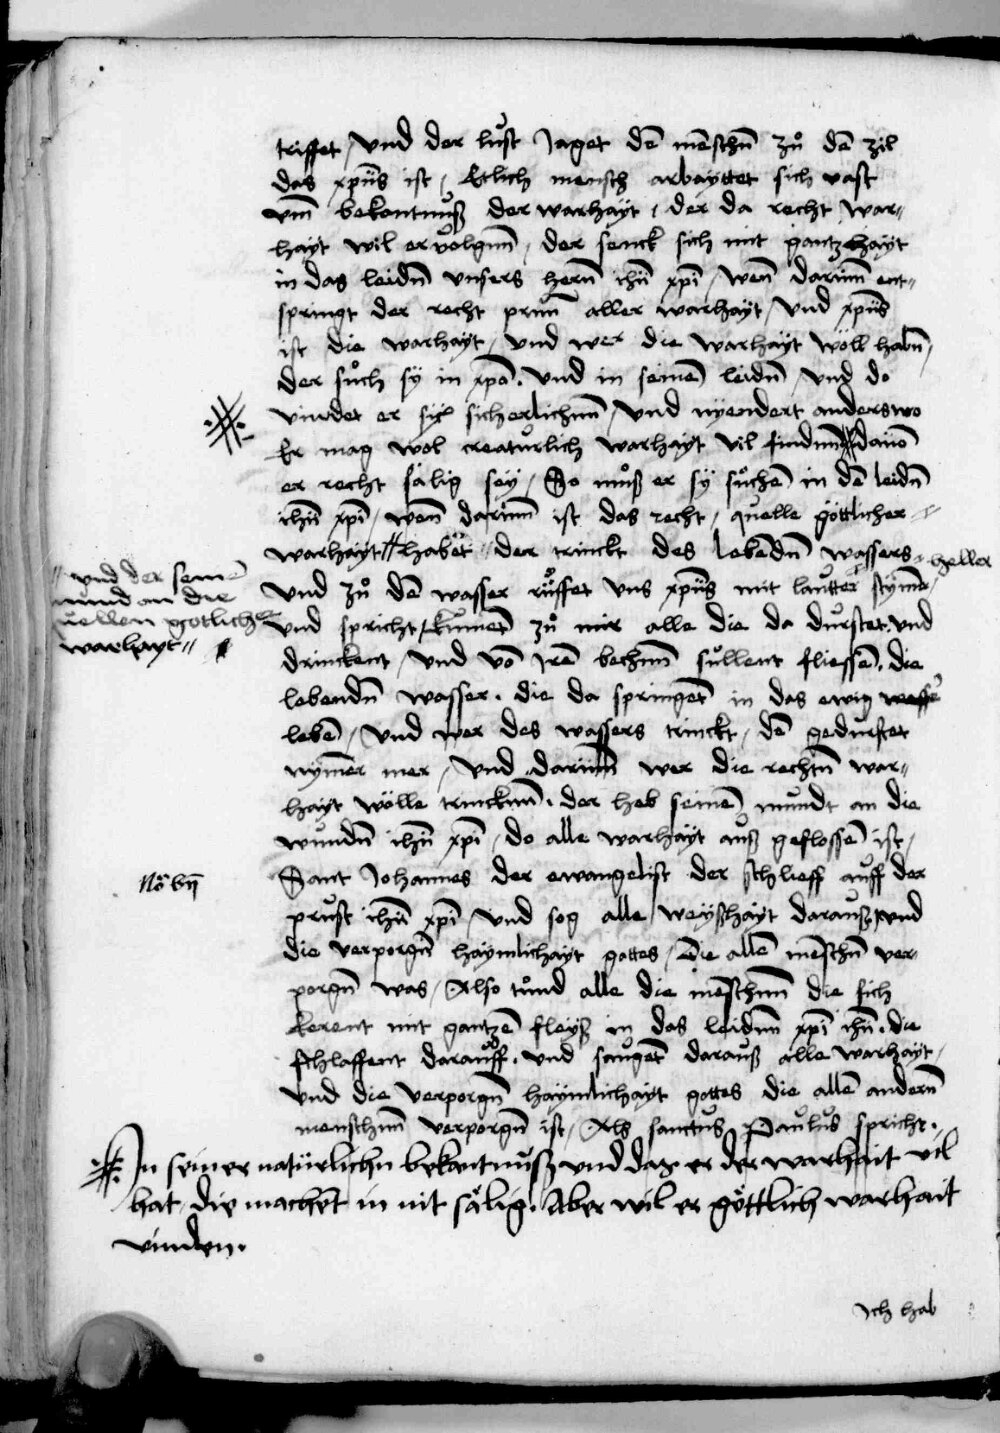 triffet / Vnd der lust Jaget dē mēschn̄ zů dē zil
das xp̄us ist / Etlich mensch arbayttet sich vast
vm̄ bekantnuß der warhayt / der da recht war„
hayt wil ervolgnn̄ / der senck sich mit gantzhayt
in das leidn̄ vnsers hern̄ ihū xp̄i / wen̄ darinn̄ ent„
springt der recht prun̄ aller warhayt / Vnd xp̄us
ist die warhayt / vnd wer die warhayt wöll habn̄ /
der sůch sy in xp̄o . vnd in seinē leidn̄ / vnd do
vindet er sy sicherlichnn̄ / vnd nyendert anderswo
Er mag wol creatůrlich warhayt vil findnn̄ dauō
er recht sälig sey / So můß er sy sůchē in dē leidn̄
ihū xp̄i / wen̄ darinn̄ ist das recht / quelle göttlicher
warhayt habet „ der trinckt des lebēdn̄ wassers
heller
„ vnd der semē
mund an die
uellen gotlich
warhayt „
Vnd zů dē wasser růffet vns xp̄us mit lautter stymē /
Vnd spricht / kumēt zů mir alle die da durstet . vnd
drinckent / Vnd vō irē bechnn̄ süllent fliessē . die
lebendn̄ wasser . die da springēt in das ewig
lebē / Vnd wer des wassers trinckt / dē gedurstet
nymēr mer / Vnd darinn̄ wer die rechtn̄ war„
hayt wölle trincknn̄ . der heb seinē mundt an die
wundn̄ ihū xp̄i / do alle warhayt auß geflossē ist /
Nō bn̄
Sant Johannes der ewangelist der schlieff auff der
prust ihū xp̄i / vnd sog alle weyßhayt darauß / vnd
die verporgn̄ haymlichayt gottes / Die allē mēschn̄ ver„
porgn̄ was / Also tůnd alle die mēschnn̄ die sich
kerent mit gantzē fleyß in das leidnn̄ xp̄i ihū . die
schlaffent darauff . vnd saugēt darauß alle warhayt /
vnd die verporgn̄ haymlichayt gottes die allē andern̄
menschnn̄ verporgn̄ ist / Als sanctus Paulus spricht .
In seiner natürlichn bekantnuß vnd daz er der warhait vil
hat die machet in nit sälig. Aber wil er göttlich warhait
vinden.
Ich hab